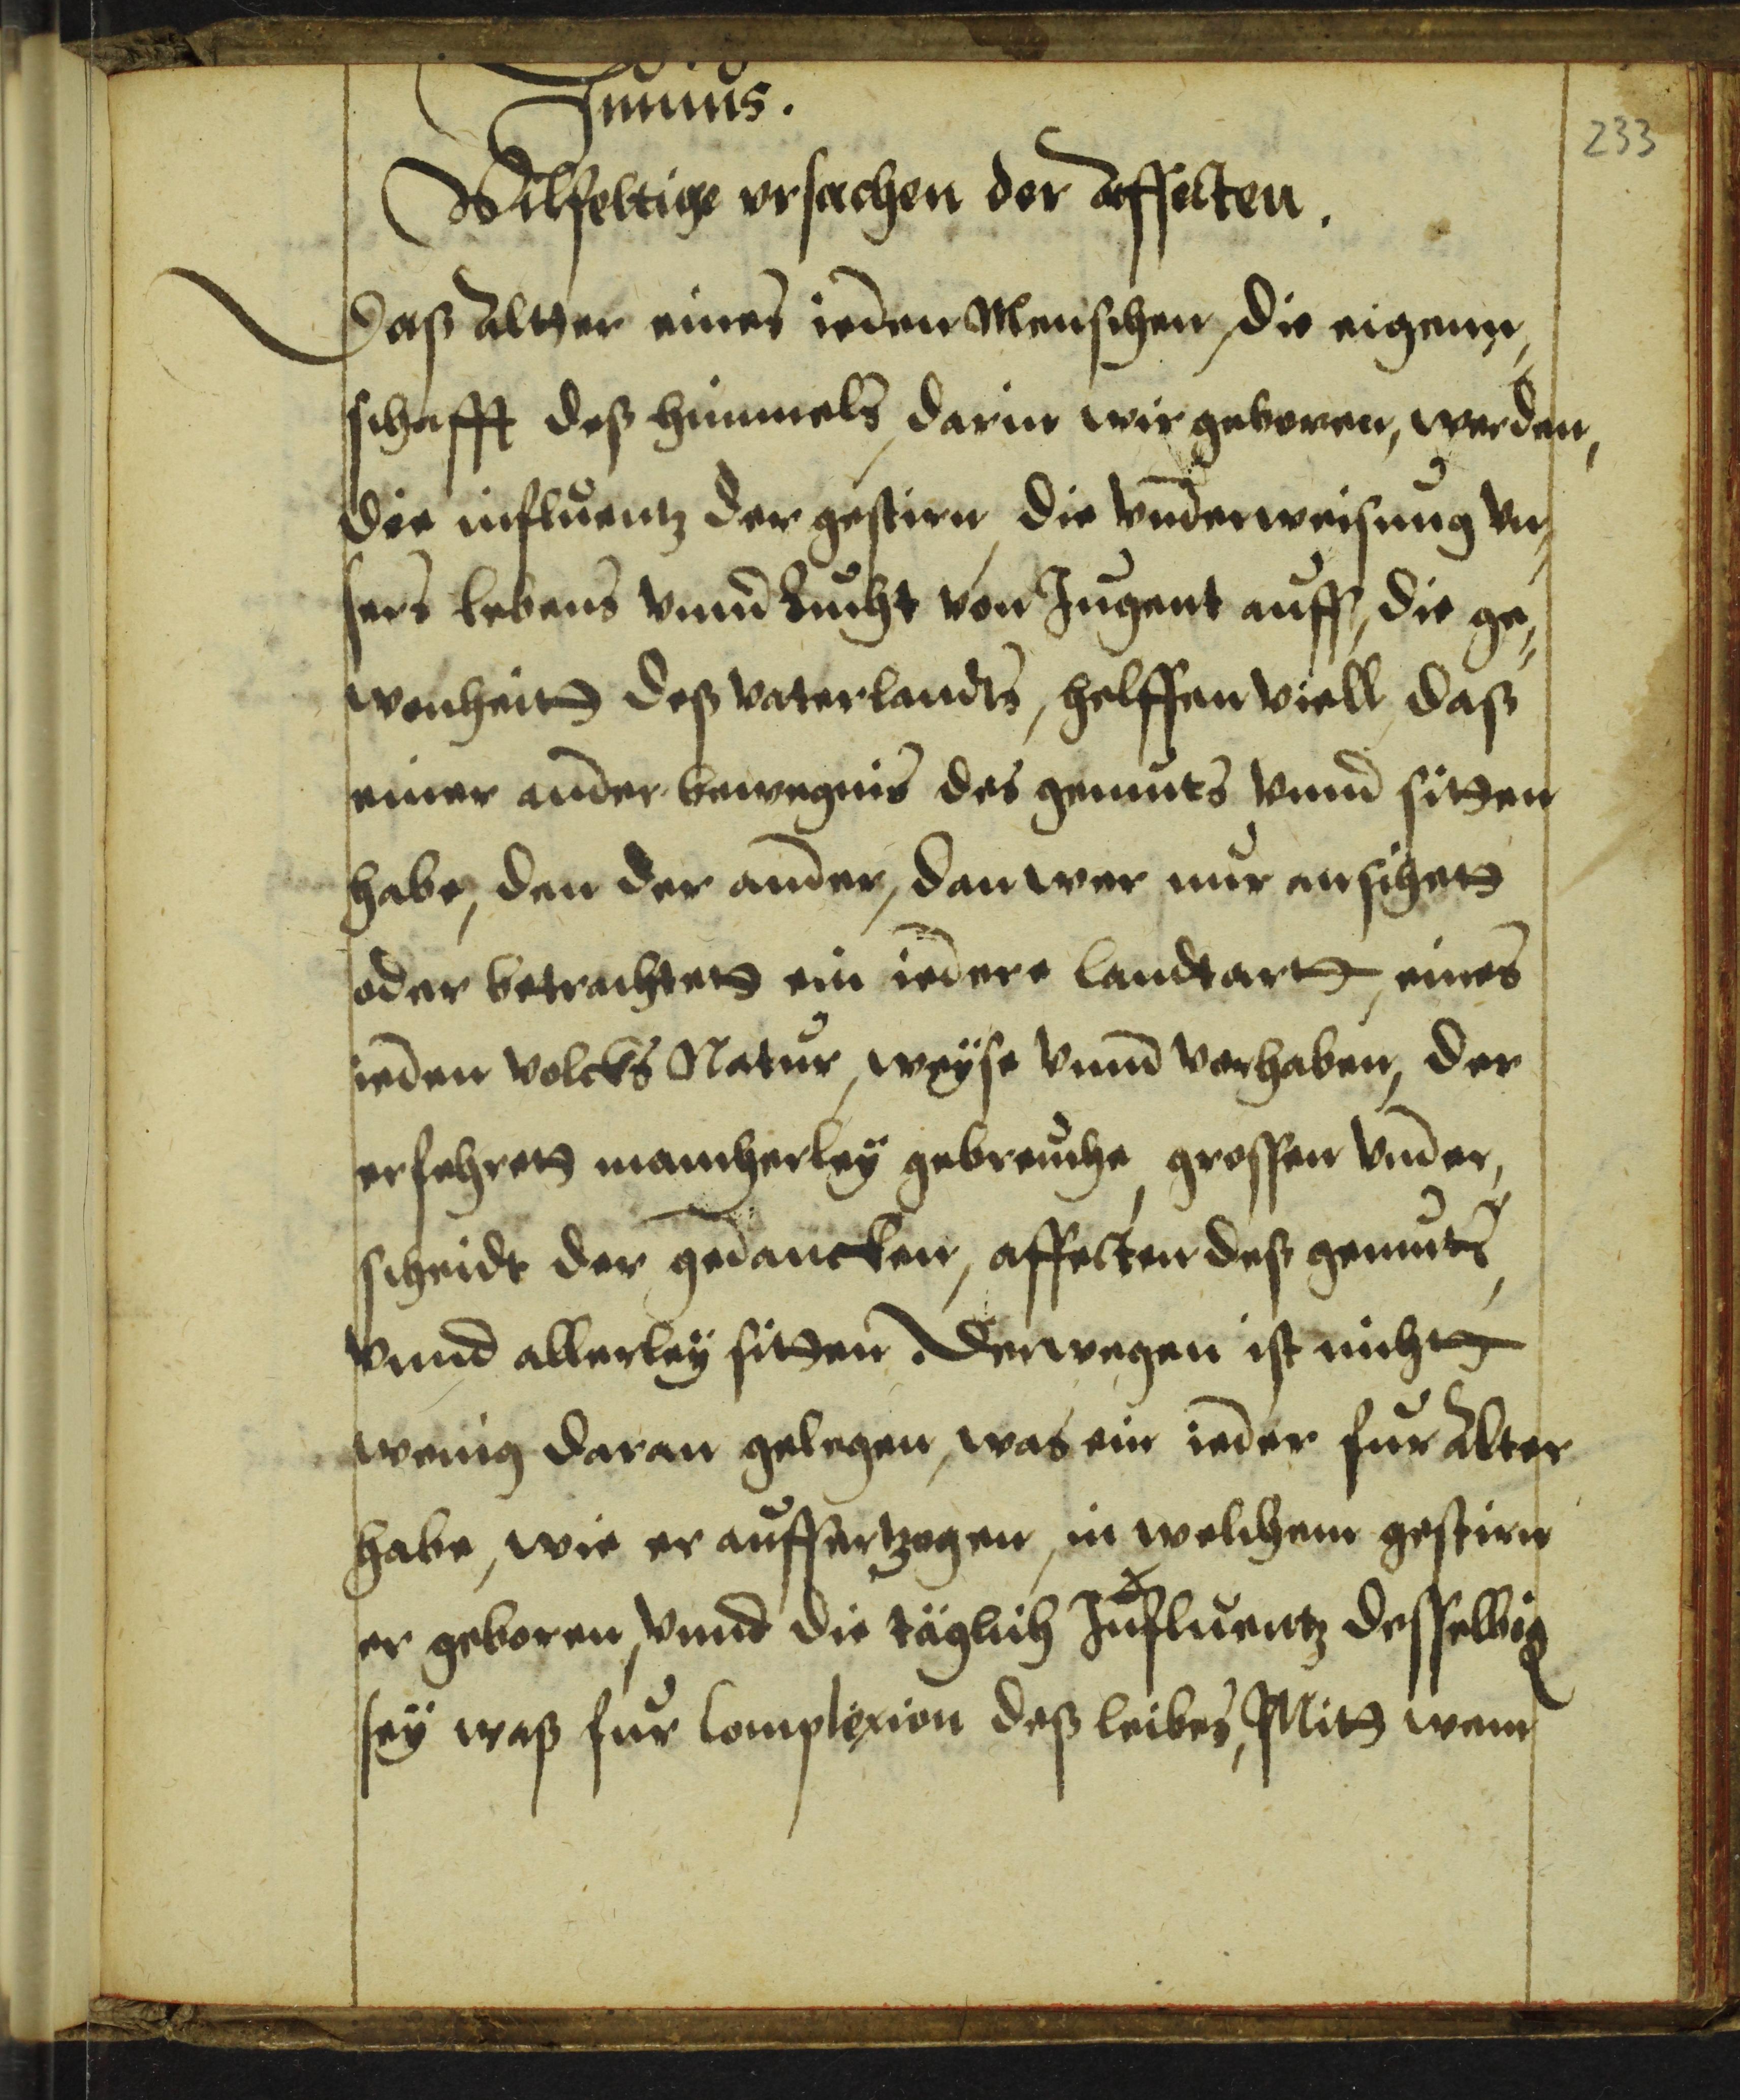 Junius.
233
Vilfeltige vrsachen der Affecten.
Daß Altter eines ieden Menschen, die eigenn,
schafft deß himmels, darin wir geboren, werden,
die influentz der gestirn, die vnderweisung vn,
sers lebens vnnd Zucht von Jugent auff, die ge,
wonheitt deß vaterlandts, helffen viell, daß
einer ander bewegnis des gemuts vnnd sitten
habe, den der ander, dan wer nur ansihett
oder betrachtett ein iedere landtartt, eines
ieden volcks Natur, weÿse vnnd vorhaben, der
erfehrett mancherleÿ gebreuche, grossen vnder,
scheidt der gedancken, affecten deß gemuts,
vnnd allerleÿ sitten. Derwegen ist nichtt
wenig daran gelegen, was ein ieder fur Alter
habe, wie er aufferzogen, in welchem gestirn
er geboren, vnnd die täglich Influentz desselbig
seÿ waß fur Complexion deß leibes, Mitt wem